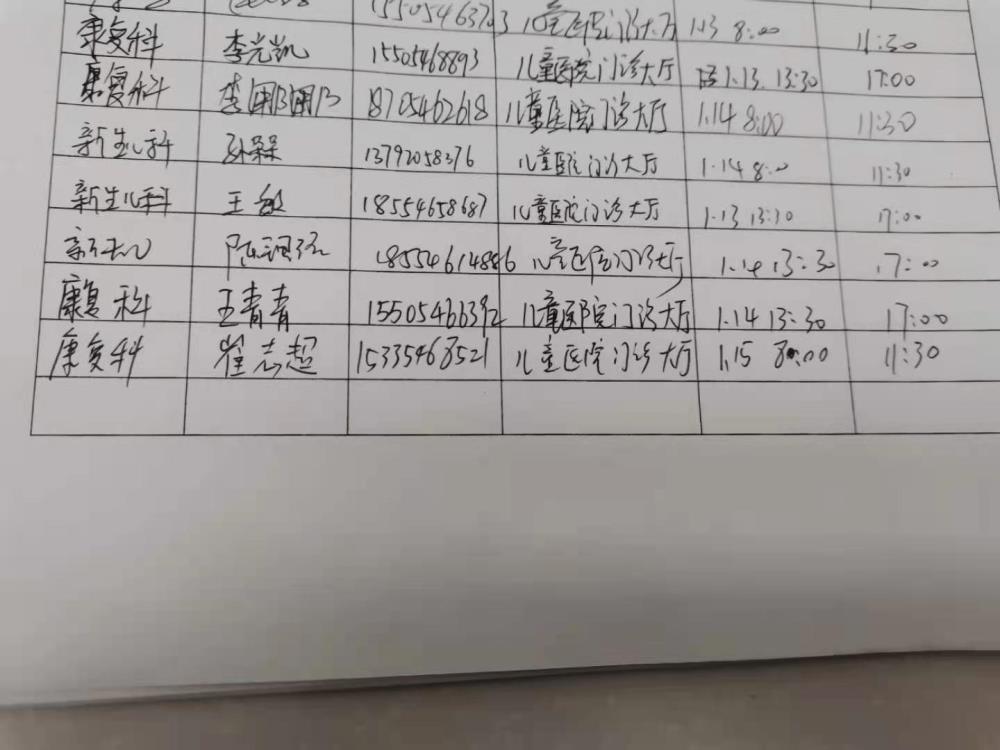 15505463703 儿童医院门诊大厅 1.13 8:00 11:30
康复科 李光凯 15505468893 儿童医院门诊大厅 1.13. 13:30 17:00
康复科 李朋朋 18705462618 儿童医院门诊大厅 1.14 8:00 11:30
新生儿科 孙杲 13792058376 儿童医院门诊大厅 1.14 8:00 11:30
新生儿科 王敏 18554658687 儿童医院门诊大厅 1.13 13:30 17:00
新生儿 18554614886 儿童医院门诊大厅 1.14 13:30 17:00
康复科 王青青 15505466392 儿童医院门诊大厅 1.14 13:30 17:00
康复科 崔志超 15335468521 儿童医院门诊大厅 1.15 8:00 11:30